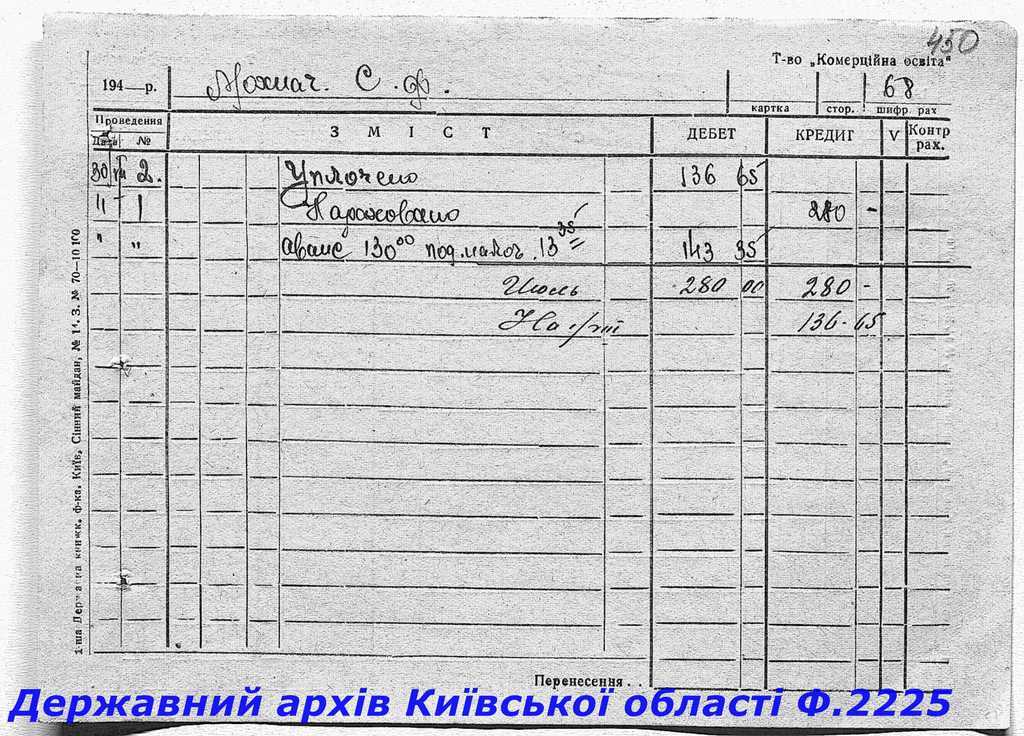 450
Т-во „Комерційна освіта"
194 — р. Мохнач. С. Ф. 68
картка стор. шифр. рах
Проведення ЗМІСТ ДЕБЕТ КРЕДИТ V Контр рах.
Дата №
30 VII 2. Уплочено 136 65
" 1 Нараховано 280 -
" " аванс 130 00 под. 13 35 143 35
Июль 280 00 280 -
На 136-65
Перенесення . .
1-ша Державна книжк. ф-ка. Київ, Сінний майдан, № 14. З. № 70—10
Державний архів Київської області Ф.2225